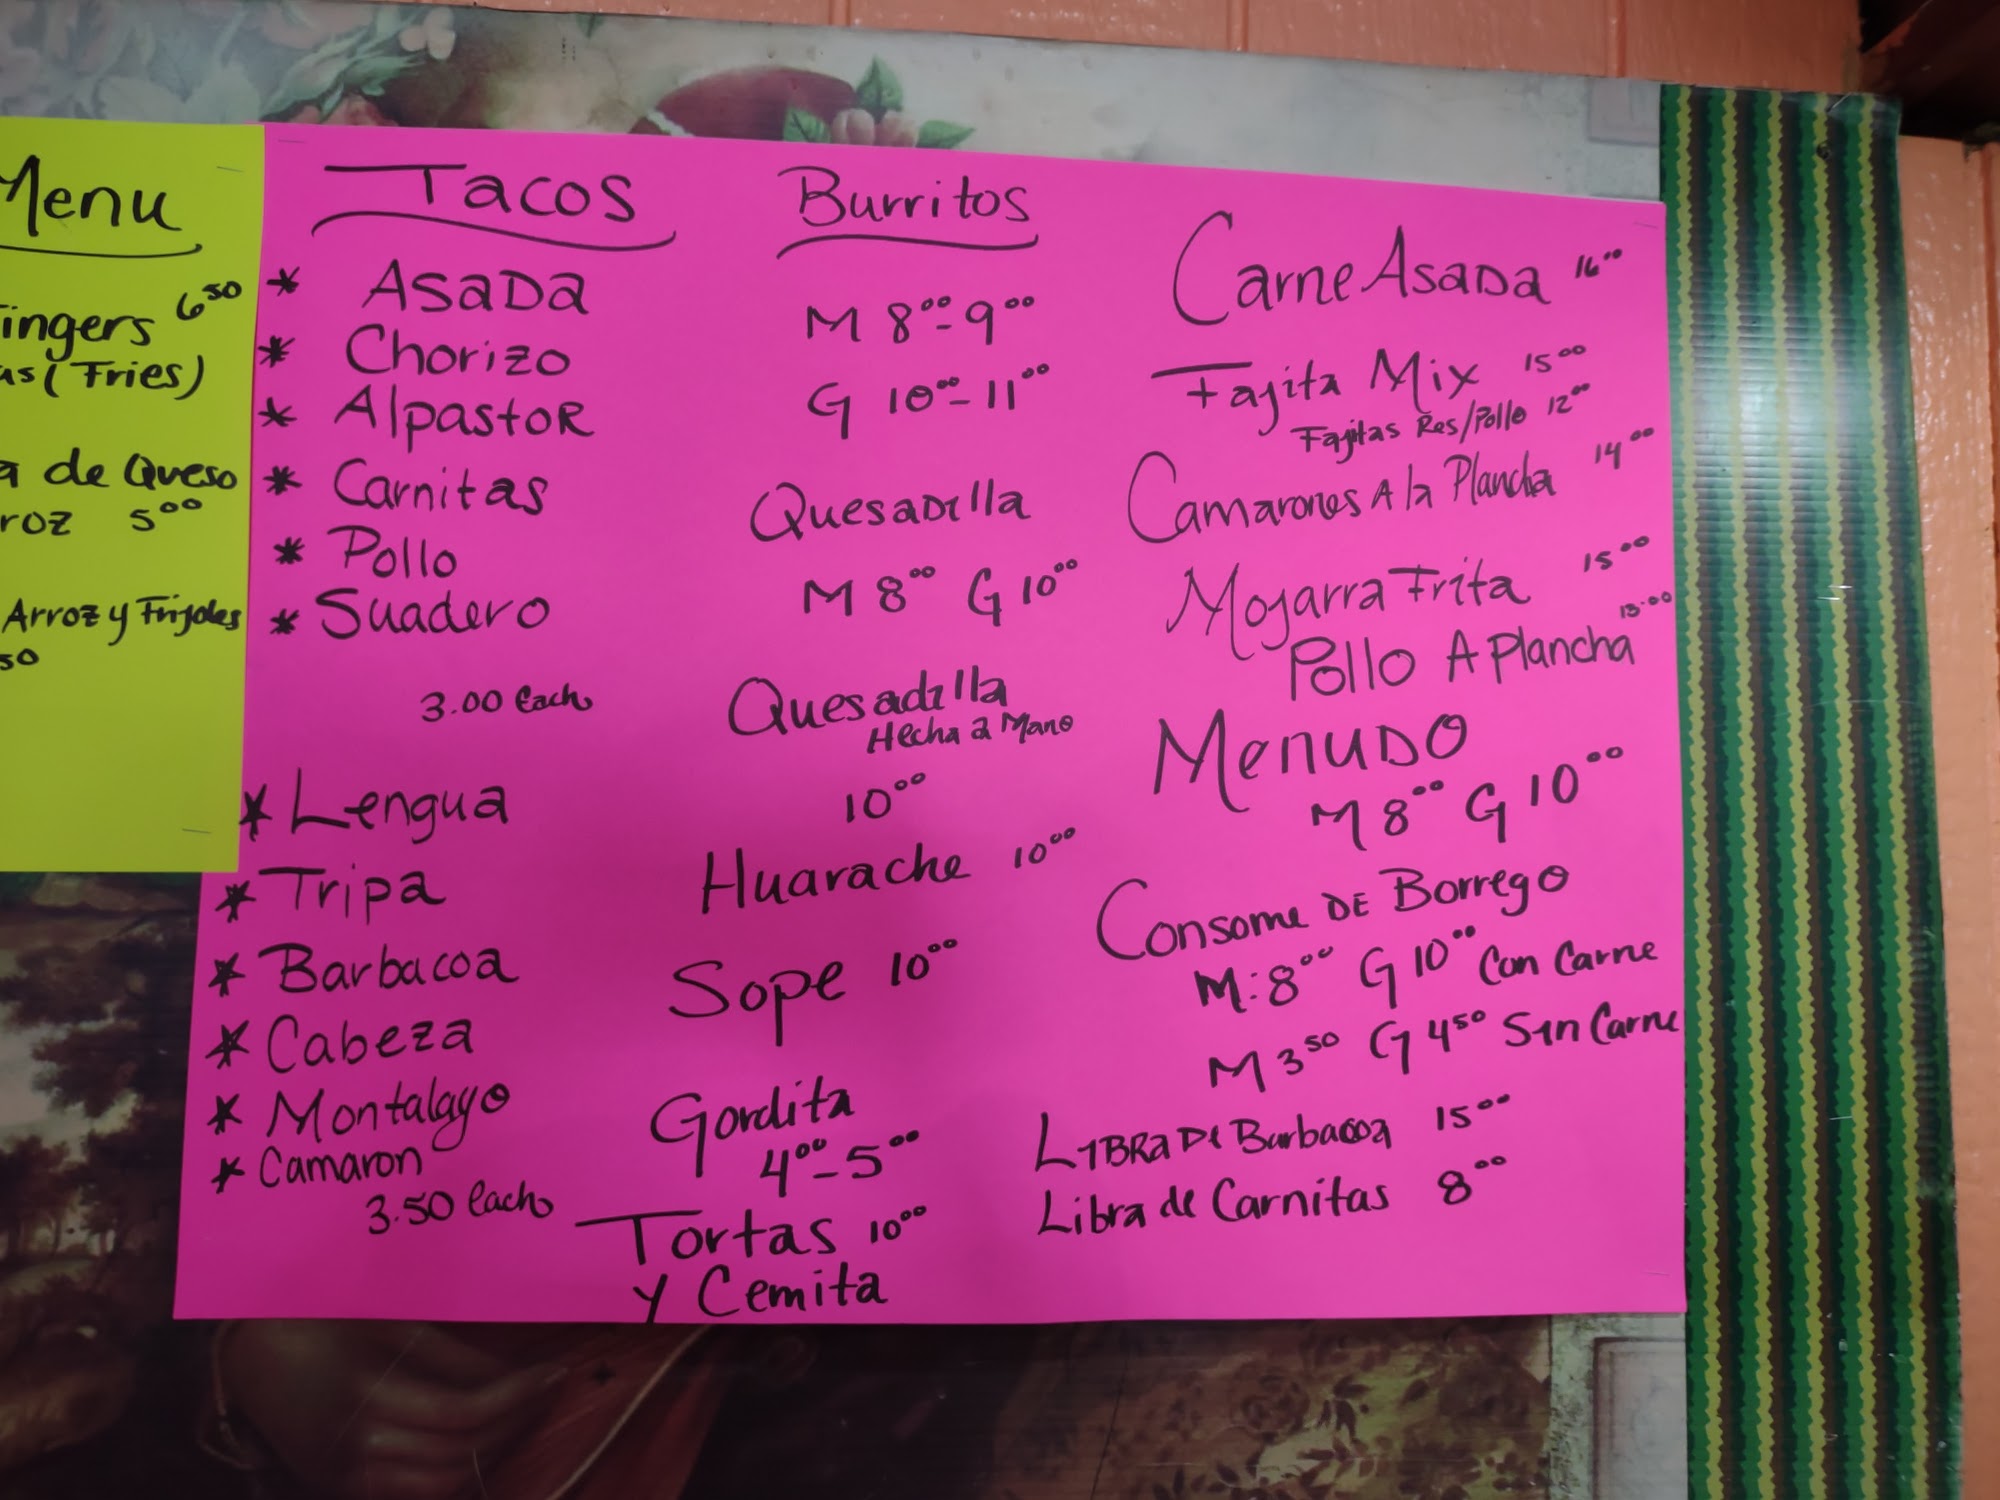 Menu
6.50
(Fries)
de Queso
5.00
Arroz y Frijoles
50
Tacos
* Asada
* Chorizo
* Alpastor
* Carnitas
* Pollo
* Suadero
3.00 Each
* Lengua
* Tripa
* Barbacoa
* Cabeza
* Montalayo
* Camaron
3.50 Each
Burritos
M 8.00 - 9.00
G 10.00 - 11.00
Quesadilla
M 8.00 G 10.00
Quesadilla
Hecha a Mano
10.00
Huarache 10.00
Sope 10.00
Gordita
4.00 - 5.00
Tortas 10.00
y Cemita
Carne Asada 16.00
Fajita Mix 15.00
Fajitas Res/Pollo 12.00
Camarones A la Plancha 14.00
Mojarra Frita 15.00
Pollo A Plancha 13.00
Menudo
M 8.00 G 10.00
Consome de Borrego
M: 8.00 G 10.00 Con Carne
M 3.50 G 4.50 Sin Carne
Libra de Barbacoa 15.00
Libra de Carnitas 8.00